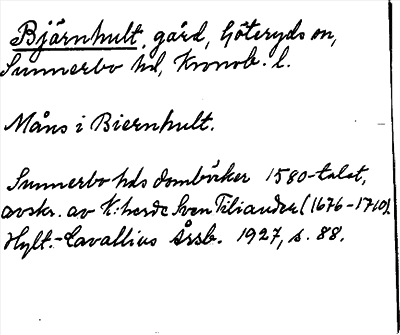 Bjärnhult, gård, Göteryds sn,
Sunnerbo hd, Kronob. l.
Måns i Biernhult.
Sunnerbo hds domböcker 1580-talet,
avskr. av K:herde Sven Tiliander (1676-1710).
Hylt.-Cavallius Årsb. 1927, s. 88.